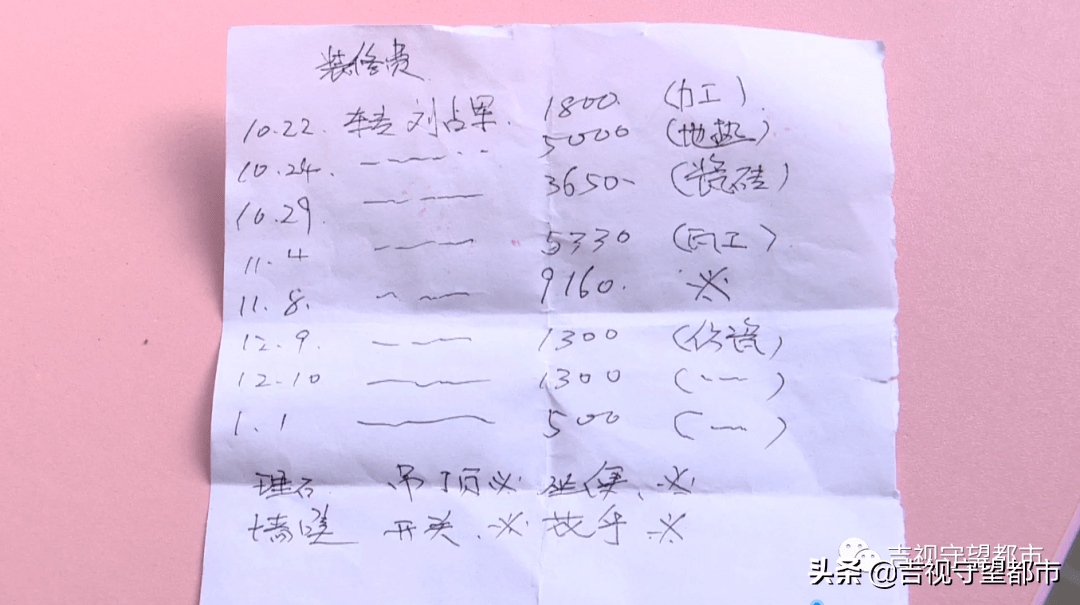 装修费
10.22. 转 刘占军. 1800. (力工).
10.24. 5000 (地热)
10.29. 3650- (瓷砖)
11.4 5330 (瓦工).
11.8. 9160. ※
12.9. 1300 (仿瓷)
12.10 1300
1.1 500
理石 吊顶※ 坐便.※
墙壁 开关.※ 扶手.※
吉视守望都市
头条@吉视守望都市